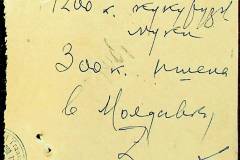 1200 к. кукурузн
муки
300 к. пшена
в Молдавку